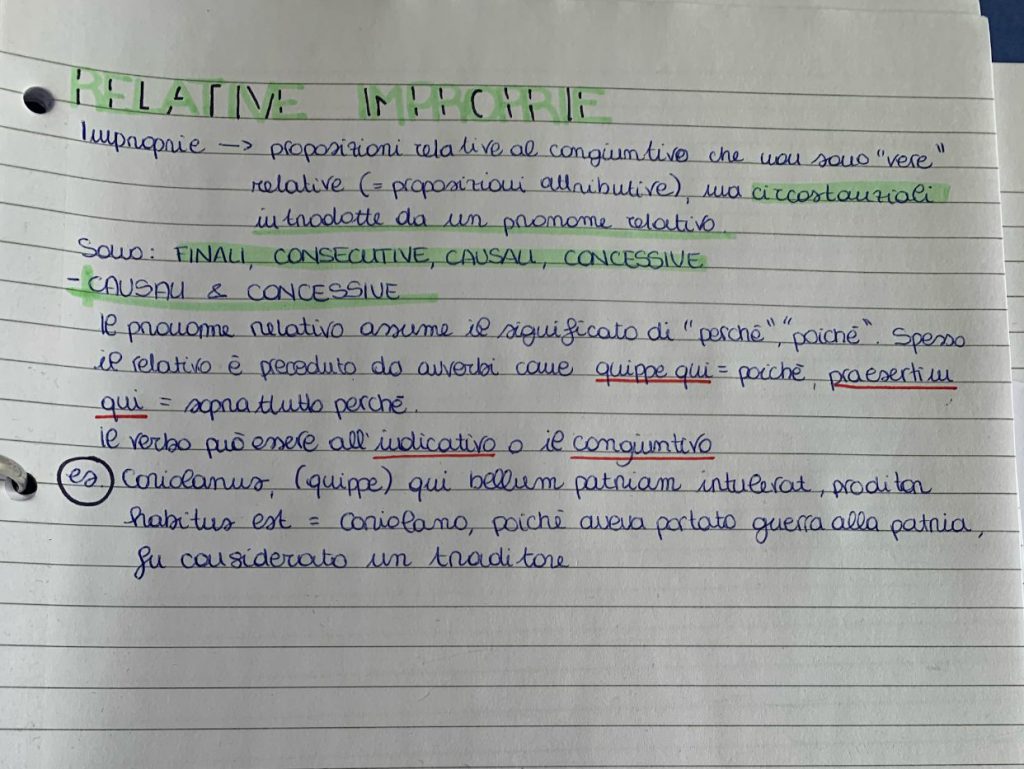 RELATIVE IMPROPRIE
Improprie -> proposizioni relative al congiuntivo che non sono "vere"
relative (= proposizioni attributive), ma circostanziali
introdotte da un pronome relativo.
Sono: FINALI, CONSECUTIVE, CAUSALI, CONCESSIVE
- CAUSALI & CONCESSIVE
Il pronome relativo assume il significato di "perché", "poiché". Spesso
il relativo è preceduto da avverbi come quippe qui = poiché, praesertim
qui = soprattutto perché.
Il verbo può essere all'indicativo o il congiuntivo
es. Coriolanus, (quippe) qui bellum patriam intulerat, proditor
habitus est = Coriolano, poiché aveva portato guerra alla patria,
fu considerato un traditore